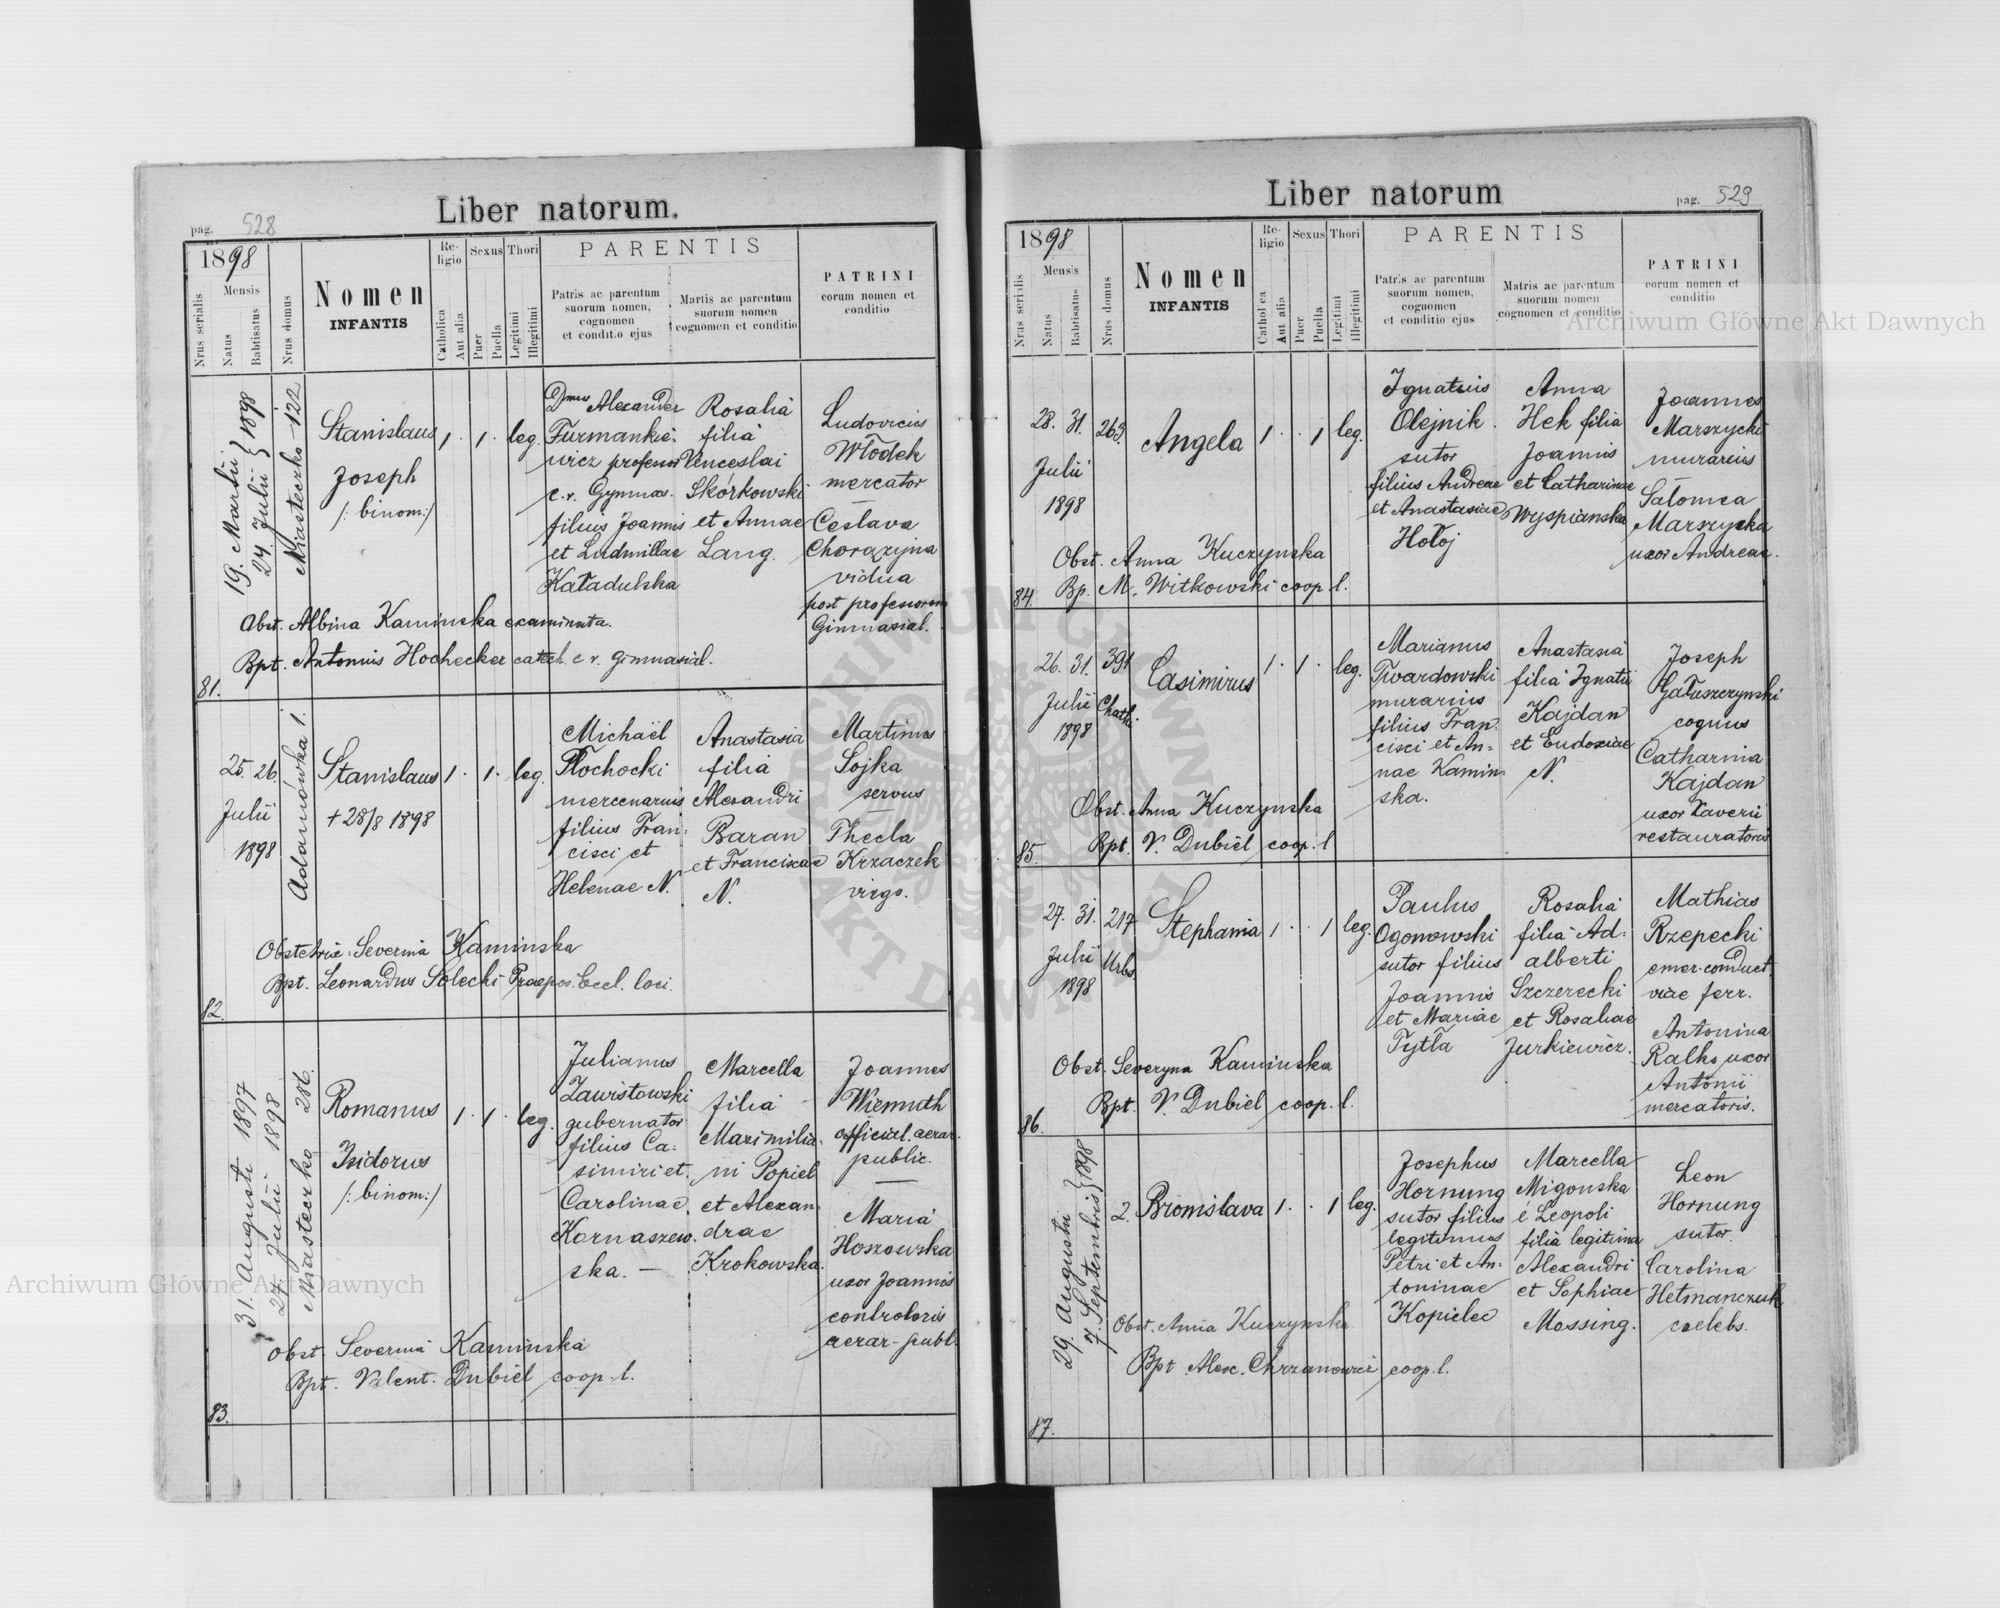 Liber natorum.
pag. 528
1898
Nrus serialis
Mensis
Natus
Babtisatus
Nrus domus
Nomen
INFANTIS
Religio
Catholica
Aut alia
Sexus
Puer
Puella
Thori
Legitimi
Illegitimi
PARENTIS
Patris ac parentum
suorum nomen,
cognomen
et condit.o ejus
Martis ac parentum
suorum nomen
cognomen et conditio
PATRINI
eorum nomen et
conditio
19. Martii
24 Julii } 1898
Miasteczko - 122
Stanislaus
Joseph
/: binom:/
1. 1. leg.
Dnus Alexander
Furmankie-
wicz professor
c. r. Gymnas.
filius Joannis
et Ludmillae
Kaładulska
Rosalia
filia
Venceslai
Skórkowski
et Annae
Lang.
Ludovicus
Włodek
mercator
Ceslava
Chorązyna
vidua
post professorem
Gimnasial.
Obst. Albina Kamińska examinata.
Bpt. Antonius Hochecker catech. c. r. gimnasial.
81.
25. 26.
Julii
1898
Adamówka 1.
Stanislaus
+ 28/8 1898
1. 1. leg.
Michaël
Płochocki
mercenarius
filius Fran-
cisci et
Helenae N.
Anastasia
filia
Alexandri
Baran
et Franciscae
N.
Martinus
Sojka
servus
Thecla
Krzaczek
virgo.
Obstetrix. Severina Kaminska
Bpt. Leonardus Solecki Praepos. Eccl. loci.
82.
31. Augusti 1897
27. Julii 1898
Miasteczko 206.
Romanus
Isidorus
/: binom:/
1. 1. leg.
Julianus
Zawistowski
gubernator
filius Ca-
simiri et
Carolinae
Kornaszew-
ska. —
Marcella
filia
Maximilia-
ni Popiel
et Alexan-
drae
Krokowska.
Joannes
Wiemuth
official. aerar.
public.
Maria
Hoszowska
uxor Joannis
controloris
aerar- publ.
Obst. Severina Kaminska
Bpt. Valent. Dubiel coop. l.
83.
Liber natorum
pag. 529
1898
Nrus serialis
Mensis
Natus
Babtisatus
Nrus domus
Nomen
INFANTIS
Religio
Catholica
Aut alia
Sexus
Puer
Puella
Thori
Legitimi
Illegitimi
PARENTIS
Patris ac parentum
suorum nomen,
cognomen
et conditio ejus
Matris ac parentum
suorum nomen
cognomen et conditio
PATRINI
eorum nomen et
conditio
28. 31. 269.
Julii
1898
Angela
1. . 1 leg.
Ignatius
Olejnik
sutor
filius Andreae
et Anastasiae
Hołoj
Anna
Hek filia
Joannis
et Catharinae
Wyspianska
Joannes
Marszycki
murarius
Salomea
Marszycka
uxor Andreae.
Obst. Anna Kuczynska
Bp. M. Witkowski coop. l.
84.
26. 31. 391
Julii Chath.
1898
Casimirus
1. 1. leg.
Marianus
Twardowski
murarius
filius Fran-
cisci et An-
nae Kamin-
ska.
Anastasia
filia Ignatii
Kajdan
et Eudoxiae
N.
Joseph
Gałuszczynski
coquus
Catharina
Kajdan
uxor Xaverii
restauratoris
Obst. Anna Kuczynska
Bpt. V. Dubiel coop. l
85.
27. 31. 217
Julii Urbs
1898
Stephania
1. . 1 leg.
Paulus
Ogonowski
sutor filius
Joannis
et Mariae
Tytła
Rosalia
filia Ad-
alberti
Szczerecki
et Rosaliae
Jurkiewicz.
Mathias
Rzepecki
emer. conduct.
viae ferr.
Antonina
Ralko uxor
Antonii
mercatoris.
Obst. Severyna Kaminska
Bpt. V. Dubiel coop. l.
86.
29. Augusti
7. Septembris } 1898
2.
Bronislava
1. . 1 leg.
Josephus
Hornung
sutor filius
legitimus
Petri et An-
toninae
Kopielec
Marcella
Migonska
é Leopoli
filia legitima
Alexandri
et Sophiae
Mossing.
Leon
Hornung
sutor.
Carolina
Hetmanczuk
caelebs.
Obst. Anna Kuczynska
Bpt. Alex. Chrzanowicz coop. l.
87.
Archiwum Główne Akt Dawnych
Archiwum Główne Akt Dawnych
ARCHIWUM GŁÓWNE
AKT DAWNYCH